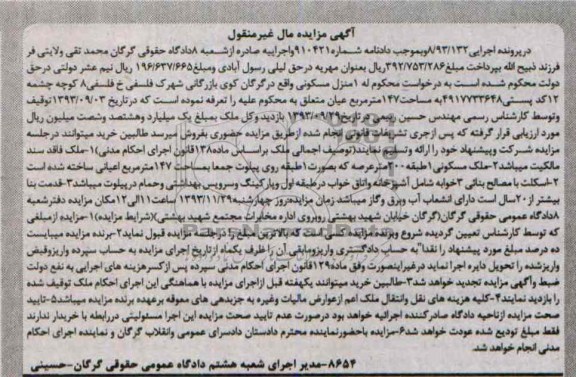 آگهی مزایده مال غیرمنقول
درپرونده اجرایی ۸/۹۳/۱۳۲وبموجب دادنامه شماره۹۱۰۴۲۱واجراییه صادره ازشعبه ۸دادگاه حقوقی گرگان محمد تقی ولایتی فر
فرزند ذبیح الله بپرداخت مبلغ۳۹۲/۷۵۳/۲۸۶ریال بعنوان مهریه درحق لیلی رسول آبادی ومبلغ۱۹۶/۶۳۷/۶۶۵ ریال نیم عشر دولتی درحق
دولت محکوم شده است به درخواست محکوم له ۱منزل مسکونی واقع درگرگان کوی بازرگانی شهرک فلسفی خ فلسفی۸ کوچه چشمه
۱۲کد پستی۴۹۱۷۷۳۳۶۴۸به مساحت۱۴۷مترمربع عیان متعلق به محکوم علیه را تعرفه نموده است که درتاریخ ۱۳۹۳/۰۹/۰۳توقیف
وتوسط کارشناس رسمی مهندس حسین ربیعی درتاریخ۱۳۹۳/۰۹/۲۹ بازدید وکل ملک بمبلغ یک میلیارد وهشتصد وشصت میلیون ریال
مورد ارزیابی قرار گرفته که پس ازجری تشریفات قانونی انجام شده ازطریق مزایده حضوری بفروش میرسد طالبین خرید میتوانند درجلسه
مزایده شرکت وپیشنهاد خود را ارائه وتسلیم نمایند(توصیف اجمالی ملک براساس ماده۱۳۸قانون اجرای احکام مدنی)۱-ملک فاقد سند
مالکیت میباشد۲-ملک مسکونی۱طبقه۲۰۰مترعرصه که بصورت۱طبقه روی پیلوت جمعا بمساحت ۱۴۷مترمربع اعیانی ساخته شده است
۲-اسکلت با مصالح بنائی ۳خوابه شامل آشپزخانه واتاق خواب درطبقه اول وپارکینگ وسرویس بهداشتی وحمام درپیلوت میباشد۳-قدمت بنا
بیشتر از۲۰سال است دارای انشعاب آب وبرق وگاز میباشد زمان مزایده:روز چهارشنبه۱۳۹۳/۱۱/۲۹ساعت۱۱الی۱۲مکان مزایده دفترشعبه
۸دادگاه عمومی حقوقی گرگان(گرگان خیابان شهید بهشتی روبروی اداره مخابرات مجتمع شهید بهشتی)(شرایط مزایده)۱-مزایده ازمبلغی
که توسط کارشناس تعیین گردیده شروع وبرنده مزایده کسی است که بالاترین مبلغ را در جلسه مزایده قبول نماید۲-برنده مزایده میبایست
ده درصد مبلغ مورد پیشنهاد را نقدا"به حساب دادگستری واریزومابقی آن را ظرف یکماه ازتاریخ اجرای مزایده به حساب سپرده واریزوقبض
واریزشده را تحویل دایره اجرا نماید درغیراینصورت وفق ماده۱۲۹قانون اجرای احکام مدنی سپرده پس ازکسرهزینه های اجرایی به نفع دولت
ضبط وآگهی مزایده تجدید خواهد شد۳-طالبین خرید میتوانند یکهفته قبل ازاجرای مزایده با هماهنگی این اجرای احکام ملک توقیف شده
را بازدید نمایند۴-کلیه هزینه های نقل وانتقال ملک اعم ازعوارض مالیات وغیره به جزبدهی های معوقه برعهده برنده مزایده میباشد۵-تایید
صحت مزایده ازناحیه دادگاه صادرکننده اجرائیه خواهد بود درصورت عدم تایید صحت مزایده این اجرا مسئولیتی دررابطه با خریدار ندارند
فقط مبلغ تودیع شده عودت خواهد شد۶-مزایده باحضورنماینده محترم دادستان دادسرای عمومی وانقلاب گرگان و نماینده اجرای احکام
مدنی انجام خواهد شد.
۸۶۵۴-مدیر اجرای شعبه هشتم دادگاه عمومی حقوقی گرگان-حسینی